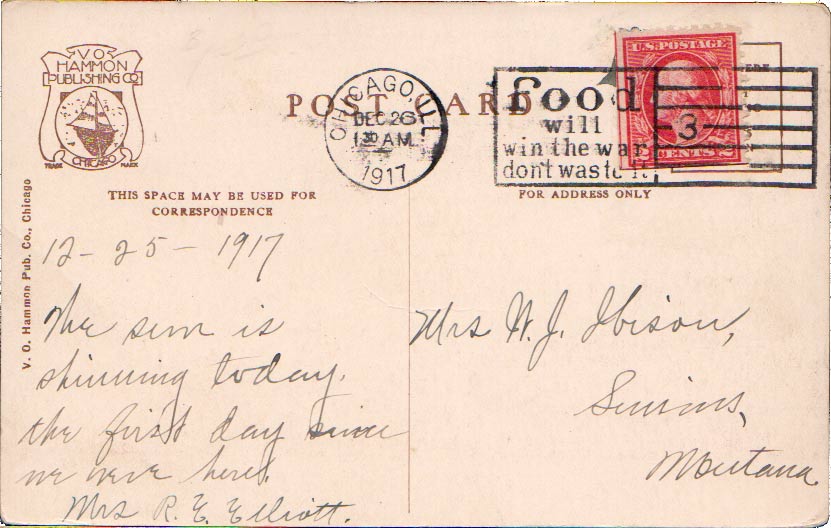 V.O.
HAMMON
PUBLISHING CO
CHICAGO
TRADE MARK
POST CARD
CHICAGO ILL
DEC 26
1 30 AM
1917
food
will
win the war
dont waste it
3
U.S. POSTAGE
CENTS 2
THIS SPACE MAY BE USED FOR
CORRESPONDENCE
FOR ADDRESS ONLY
V. O. Hammon Pub. Co., Chicago
12-25-1917
The sun is
shinning today.
the first day since
we were here.
Mrs R. E. Elliott.
Mrs W. J. Ibison,
Montana